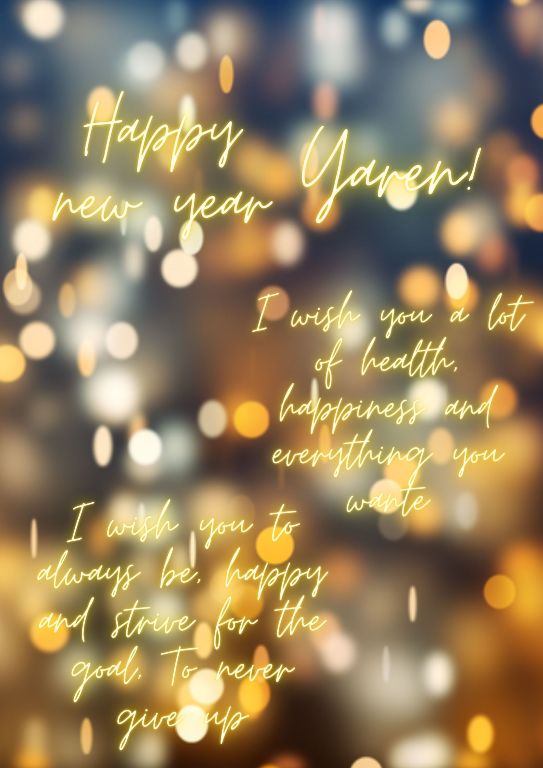 Happy
new year
Yaren!
I wish you a lot
of health,
happiness and
everything you
wante
I wish you to
always be, happy
and strive for the
goal, To never
give up